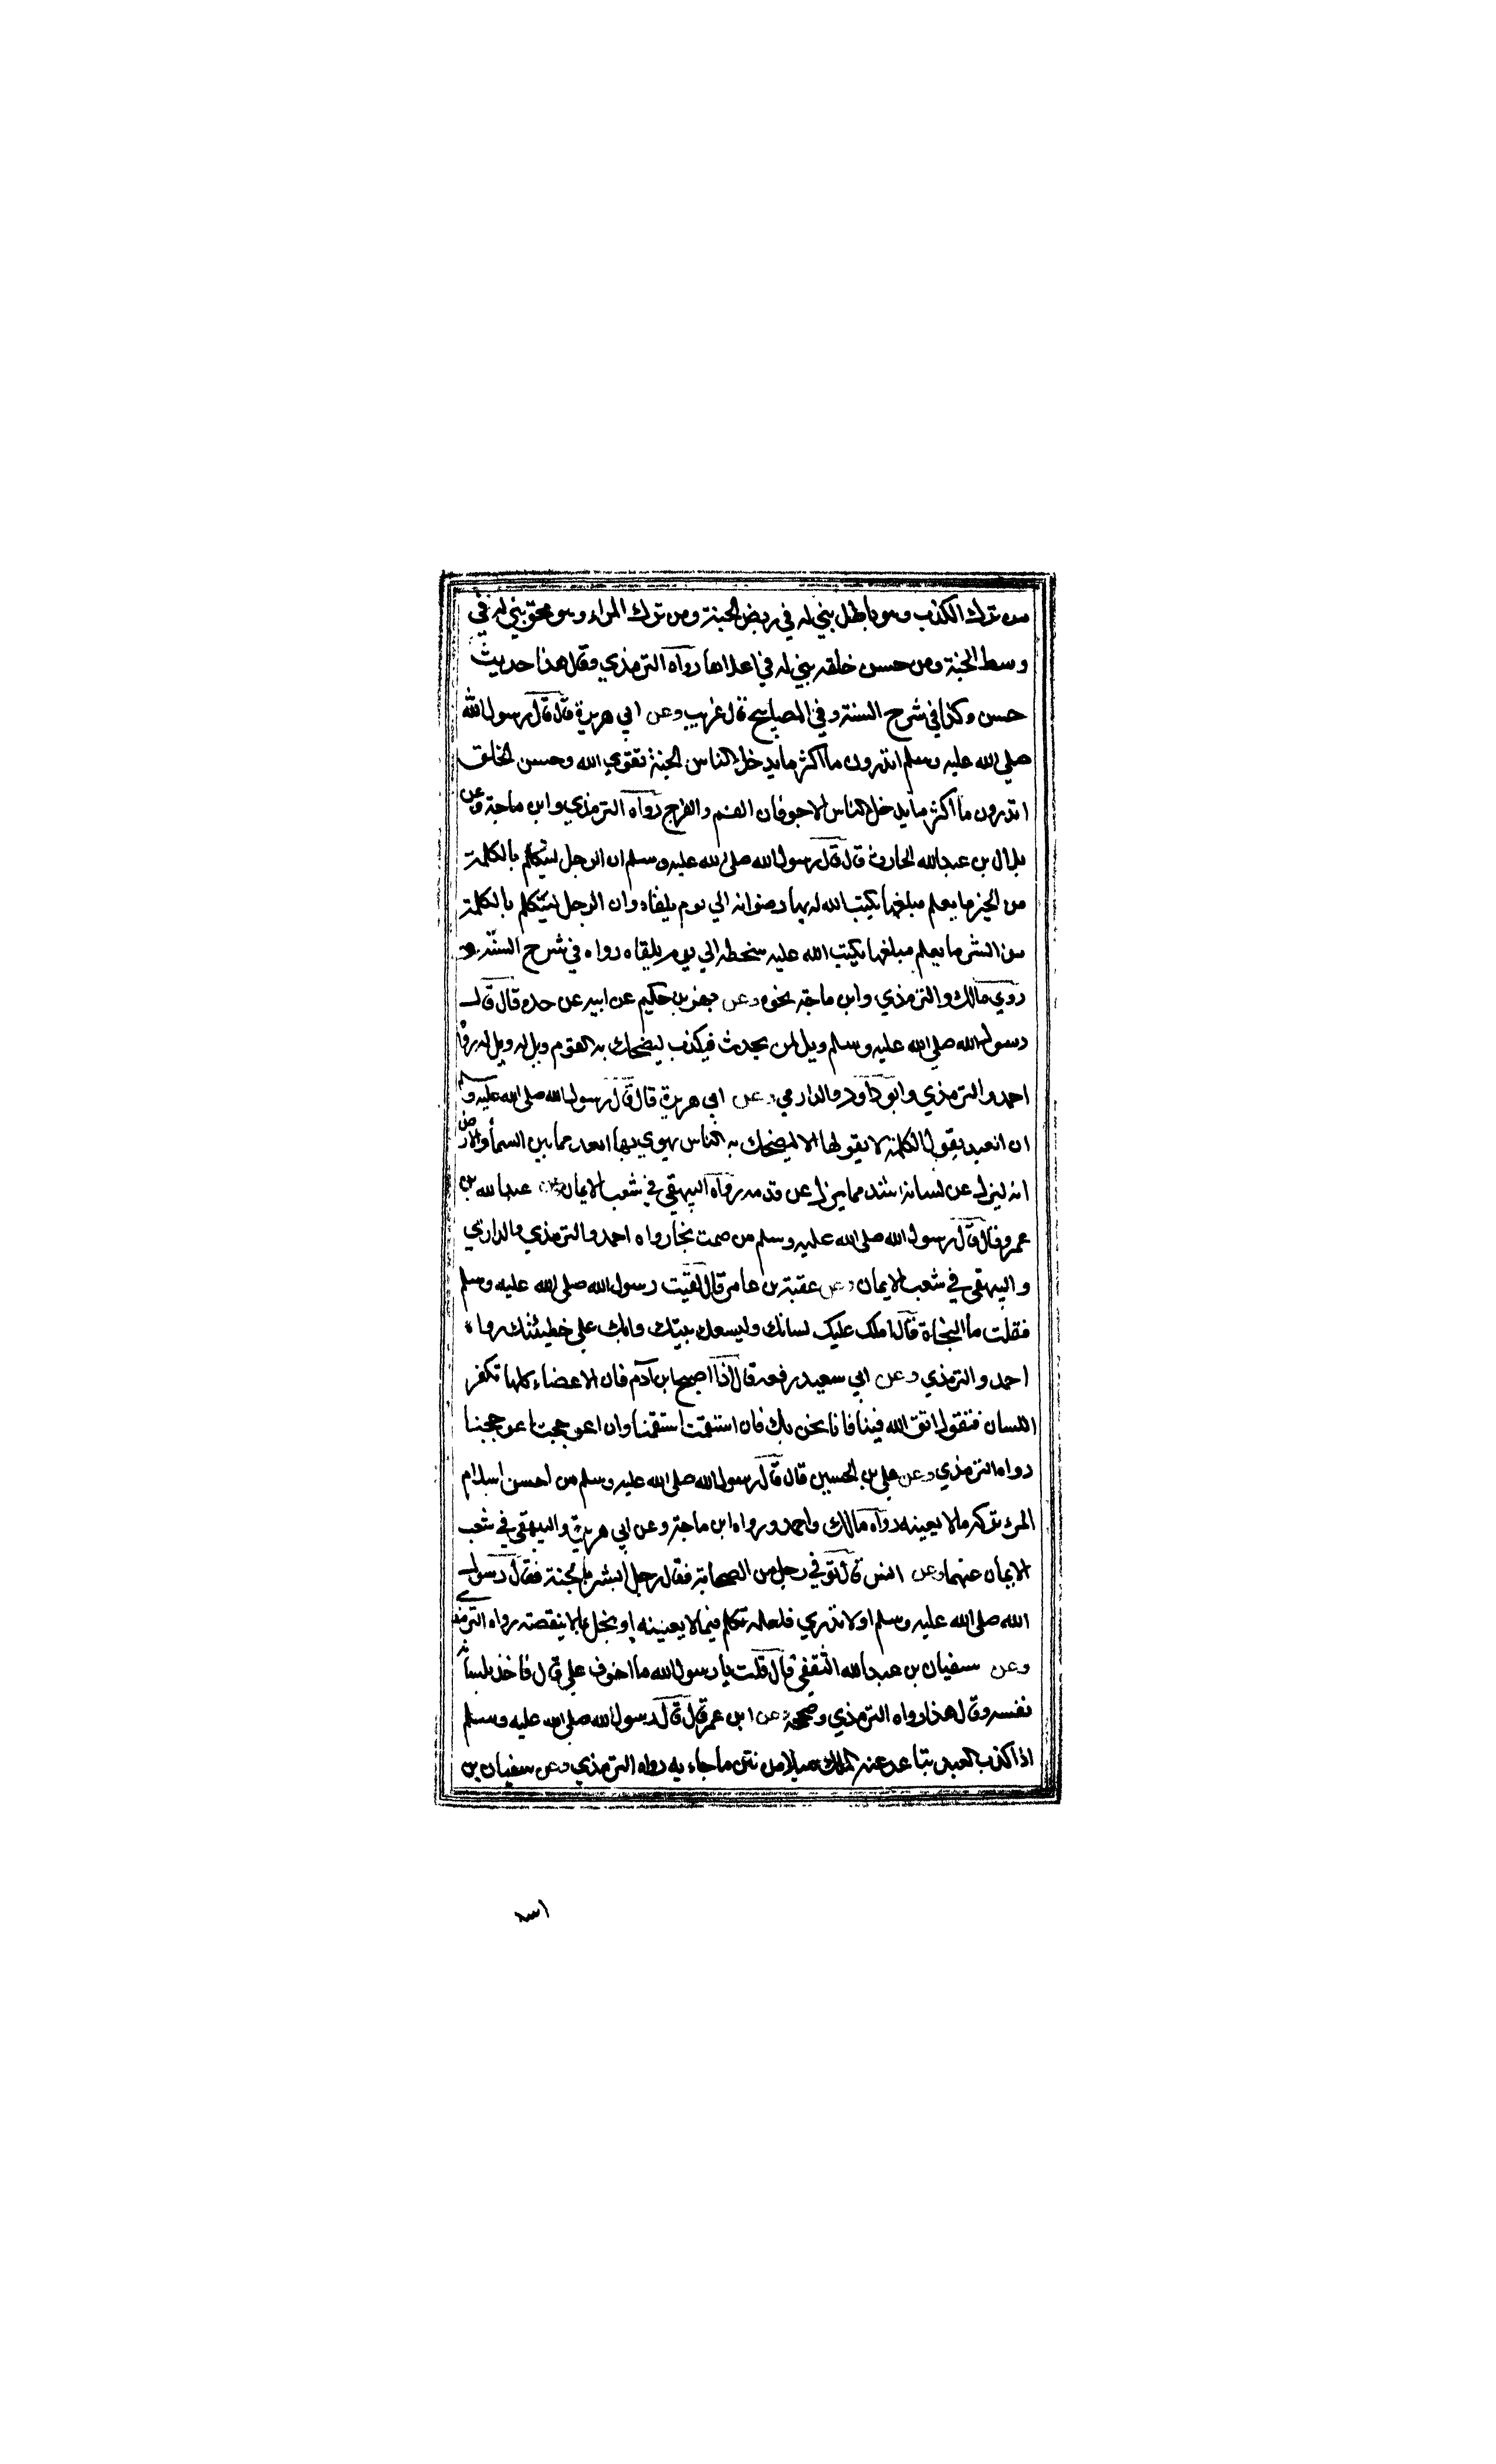 من ترك الكذب وهو باطل بني له في ربض الجنة ومن ترك المراء وهو محق بني له في
وسط الجنة ومن حسن خلقه بني له في اعلاها رواه الترمذي وقال هذا حديث
حسن وكذا في شرح السنة وفي المصابيح قال غريب وعن ابي هريرة قال قال رسول الله
صلي الله عليه وسلم اتدرون ما اكثر ما يدخل الناس الجنة تقوي الله وحسن الخلق
اتدرون ما اكثر ما يدخل الناس الاجوفان الفم والفرج رواه الترمذي وابن ماجة وعن
بلال بن عبدالله الحارث قال قال رسول الله صلي الله عليه وسلم ان الرجل ليتكلم بالكلمة
من الخير ما يعلم مبلغها يكتب الله له بها رضوانه الي يوم يلقاه وان الرجل ليتكلم بالكلمة
من الشر ما يعلم مبلغها يكتب الله عليه سخطه الي يوم يلقاه رواه في شرح السنة و
روي مالك والترمذي وابن ماجة نحوه وعن بهز بن حكيم عن ابيه عن جده قال قال
رسول الله صلي الله عليه وسلم ويل لمن يحدث فيكذب ليضحك به القوم ويل له ويل له رواه
احمد والترمذي وابو داود والدارمي وعن ابي هريرة قال قال رسول الله صلي الله عليه وسلم
ان العبد يقول الكلمة لا يقولها الا ليضحك به الناس يهوي بها ابعد مما بين السماء والارض
انه ليزل عن لسانه اشد مما يزل عن قدمه رواه البيهقي في شعب الايمان وعن عبدالله بن
عمرو قال قال رسول الله صلي الله عليه وسلم من صمت نجا رواه احمد والترمذي والدارمي
والبيهقي في شعب الايمان وعن عقبة بن عامر قال لقيت رسول الله صلي الله عليه وسلم
فقلت ما النجاة قال املك عليك لسانك وليسعك بيتك وابك علي خطيئتك رواه
احمد والترمذي وعن ابي سعيد رفعه قال اذا اصبح ابن آدم فان الاعضاء كلها تكفر
اللسان فتقول اتق الله فينا فانا نحن بك فان استقمت استقمنا وان اعوججت اعوججنا
رواه الترمذي وعن علي بن الحسين قال قال رسول الله صلي الله عليه وسلم من احسن اسلام
المرء تركه ما لا يعينه رواه مالك واحمد ورواه ابن ماجة وعن ابي هريرة والبيهقي في شعب
الايمان عنهما وعن انس قال توفي رجل من الصحابة فقال رجل ابشر بالجنة فقال رسول
الله صلي الله عليه وسلم اولا تدري فلعله تكلم فيما لا يعنينه او بخل بما لا ينقصه رواه الترمذي
وعن سفيان بن عبدالله الثقفي قال قلت يا رسول الله ما اخوف علي قال فاخذ بلسانه
نفسه وقال هذا رواه الترمذي وصححه وعن ابن عمر قال قال رسول الله صلي الله عليه وسلم
اذا كذب العبد تباعد عنه الملك ميلا من نتن ما جاء به رواه الترمذي وعن سفيان بن
اسد